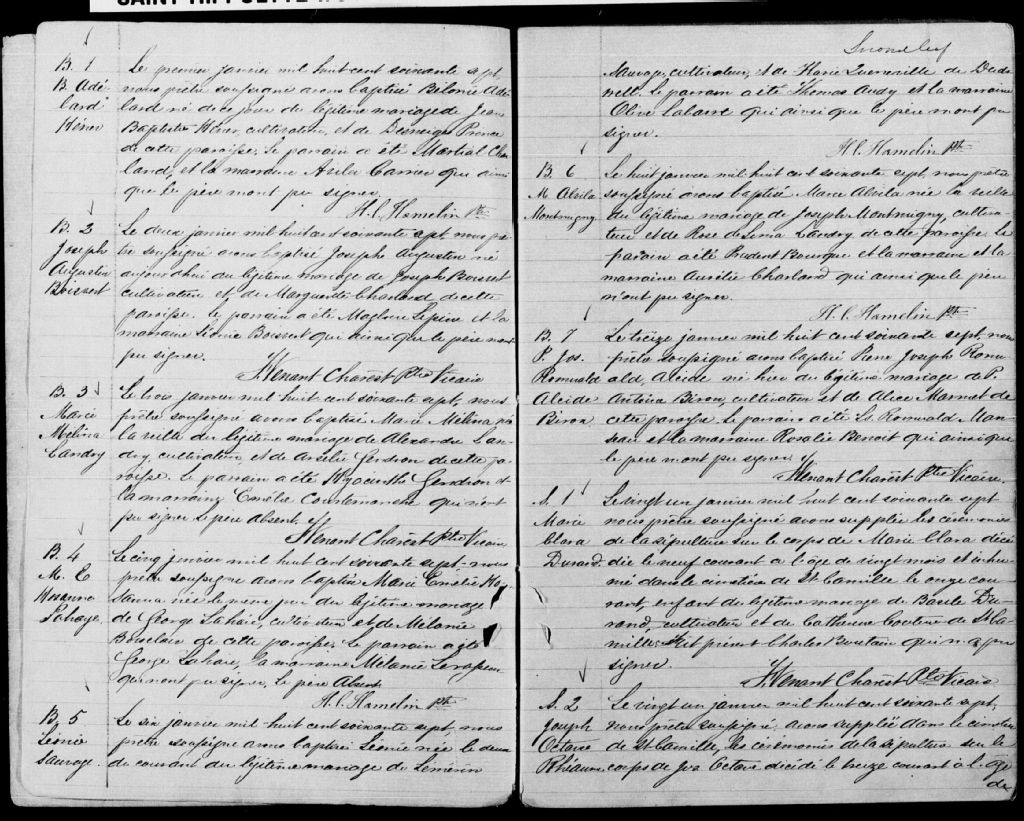 B. 1
B. Adé-
lard
Héner
Le premier janvier mil huit cent soixante sept,
nous prêtre soussigné avons baptisé Bélonie Adé
lard né du jour du légitime mariage de Jean
Baptiste Héner, cultivateur, et de Démerige Prince
de cette paroisse. Le parrain a été Martial Char
land, et la marraine Asila Carrier qui ainsi
que le père n'ont pu signer.
H. C. Hamelin Ptre
B. 2
Joseph
Augustin
Boisvert
Le deux janvier mil huit cent soixante sept, nous prê-
tre soussigné avons baptisé Joseph Augustin né
aujourd'hui du légitime mariage de Joseph Boisvert
cultivateur et de Marguerite Charland de cette
paroisse. Le parrain a été Magloire Lepine et la
marraine Léonie Boisvert qui ainsi que le père n'ont
pu signer.
J. Venant Charest Ptre Vicaire
B. 3
Marie
Mélina
Landry
Le trois janvier mil huit cent soixante sept, nous
prêtre soussigné avons baptisé Marie Mélina née
la veille du légitime mariage de Alexandre Lan-
dry, cultivateur, et de Aurélie Gendron de cette pa-
roisse. Le parrain a été Hyacinthe Gendron et
la marraine Emélie Courtemanche qui n'ont
pu signer. Le père absent.
J. Venant Charest Ptre Vicaire
B. 4
M. E
Rosanna
Lahaye.
Le cinq janvier mil huit cent soixante sept nous
prêtre soussigné avons baptisé Marie Emélie Ro
sanna née le même jour du légitime mariage
de George Lahaie, cultivateur et de Mélanie
Boisclair de cette paroisse. Le parrain a été
George Lahaie, la marraine Mélanie
qui n'ont pu signer. Le père absent
H. C. Hamelin Ptre
B. 5
Léonie
Sauvage.
Le six janvier mil huit cent soixante sept, nous
prêtre soussigné avons baptisé Léonie née le deux
du courant du légitime mariage de
Second feuf
Sauvage, cultivateur, et de Marie Quenneville de Dud
swell. Le parrain a été Thomas Audy et la marraine
Olive Labarre qui ainsi que le père n'ont pu
signer.
H. C. Hamelin Ptre
B. 6
M. Alvila
Montmigny.
Le huit janvier mil huit cent soixante sept, nous prêtre
soussigné avons baptisé Marie Alvila née la veille
du légitime mariage de Joseph Montmigny, cultiva-
teur et de Rose de Lima Landry de cette paroisse. Le
parrain a été Prudent Bourque et la marraine et la
marraine Aurélie Charland qui ainsi que le père
n'ont pu signer.
H. C. Hamelin Ptre
B. 7
P. Jos.
Romuald
Alcide
Biron
Le treize janvier mil huit cent soixante sept, nous
prêtre soussigné avons baptisé Pierre Joseph Romu
ald, Alcide né hier du légitime mariage de P.
Antoine Biron, cultivateur et de Alice Marmet de
cette paroisse. Le parrain a été Ls. Romuald Man-
seau et la marraine Rosalie Benoit qui ainsi que
le père n'ont pu signer.
J. Venant Charest Ptre Vicaire.
S. 1
Marie
Clara
Durand.
Le vingt un janvier mil huit cent soixante sept
nous prêtre soussigné avons supplée les cérémonies
de la sépulture sur le corps de Marie Clara décé
dée le neuf courant à l'âge de vingt mois et inhu-
mé dans le cimetière de St Camille le onze cou-
rant, enfant du légitime mariage de Basile Du-
rand, cultivateur et de Catherine Couture de St Ca-
mille. Fut présent Charles Boutain qui n'a pu
signer.
J. Venant Charest Ptre Vicaire
S. 2
Joseph
Octave
Rhéaume
Le vingt un janvier mil huit cent soixante sept,
nous prêtre soussigné, avons supplée dans le cimetière
de St Camille, les cérémonies de la sépulture sur le
corps de Jos Octave décédé le treize courant à l'âge
de